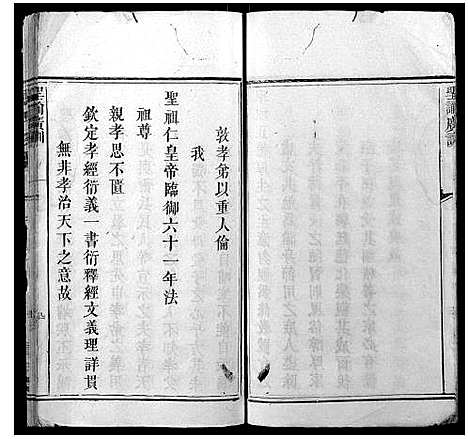 聖諭廣訓
敦孝弟以重人倫
我
聖祖仁皇帝臨御六十一年法
祖尊
親孝思不匱
欽定孝經衍義一書衍釋經文義理詳貫
無非孝治天下之意故
聖諭廣訓